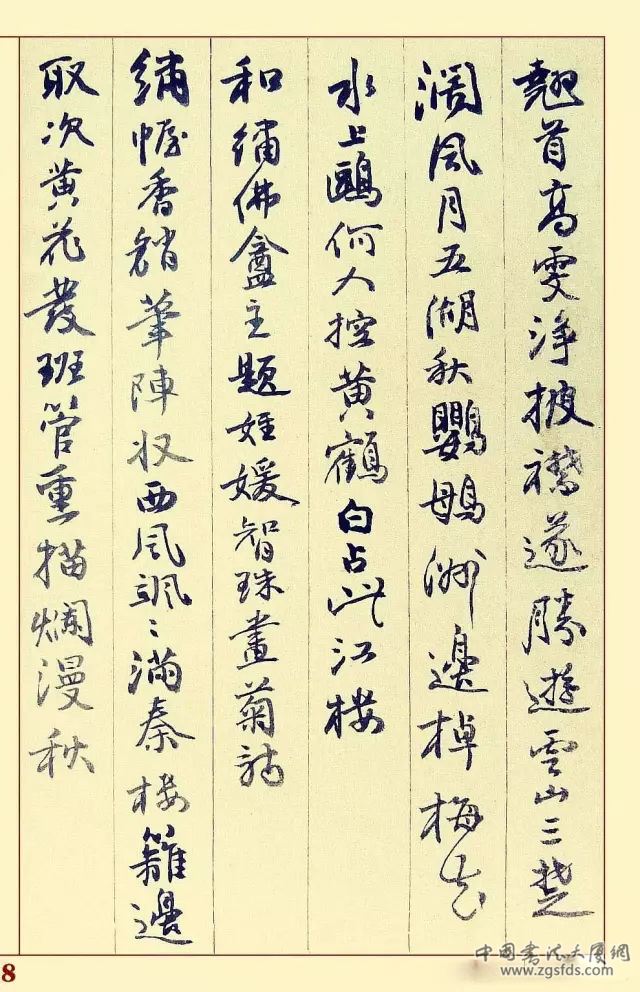 翹首高雯淨披襟遂勝遊雲山三楚
濶風月五湖秋鸚鵡洲邊棹梅花
水上鷗何人控黃鶴白占此江樓
和繡佛盦主題姪媛智珠畫菊韵
繡幄香銷筆陣收西風颯〻滿秦樓籬邊
取次黃花發班管重描爛漫秋
8
中国書法大厦網
www.zgsfds.com